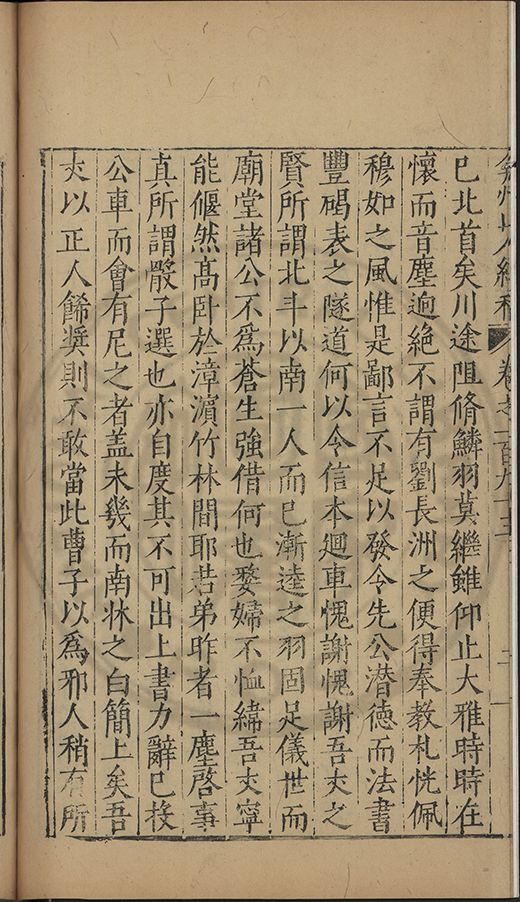 弇州山人續稿 卷之一百九十三
已北首矣川途阻脩鱗羽莫繼雖仰止大雅時時在
懷而音塵逈絶不謂有劉長洲之便得奉教札恍佩
穆如之風惟是鄙言不足以發令先公潜德而法書
豐碣表之隧道何以令信本迴車愧謝愧謝吾丈之
賢所謂北斗以南一人而已漸逵之羽固足儀世而
廟堂諸公不爲蒼生強借何也嫠婦不恤緯吾丈寧
能偃然髙卧於漳濵竹林間耶若弟昨者一塵啓事
真所謂骰子選也亦自度其不可出上書力辭已投
公車而會有尼之者盖未幾而南牀之白簡上矣吾
丈以正人餙奬則不敢當此曹子以爲邪人稍有所